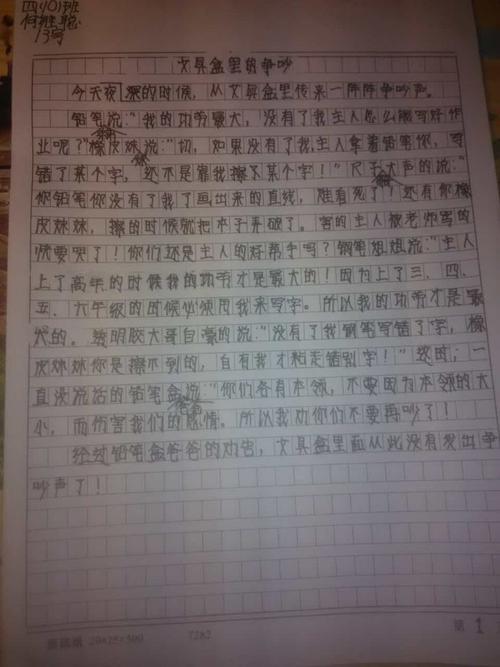 四(10)班
13号
文具盒里的争吵
今天夜深的时候，从文具盒里传来一阵阵争吵声。
铅笔说："我的功劳最大，没有了我主人怎么能写好作
业呢？"橡皮妹妹说："切，如果没有了我，主人拿着铅笔你，写
错了某个字，还不是靠我擦了某个字！"尺子大声的说："
你铅笔你没有了我了画出来的直线，难看死了！还有你橡
皮妹妹，擦的时候就把本子弄破了。害的主人被老师骂的
快要哭了！你们还是主人的好帮手吗？钢笔姐姐说："主人
上了高年的时候我的功劳才是最大的！因为上了三、四、
五、六年级的时候必须用我来写字。所以我的功劳才是最
大的。透明胶大哥自豪的说："没有了我钢笔写错了字，橡
皮妹妹你是擦不到的，自有我才粘走错别字！"这时，一
直没说话的铅笔盒爸爸说："你们各有本领，不要因为本领的大
小，而伤害我们的感情。所以我劝你们不要再吵了！
经过铅笔盒爸爸的劝告，文具盒里面从此没有发出争
吵声了！
20×25=500 7282 第 1